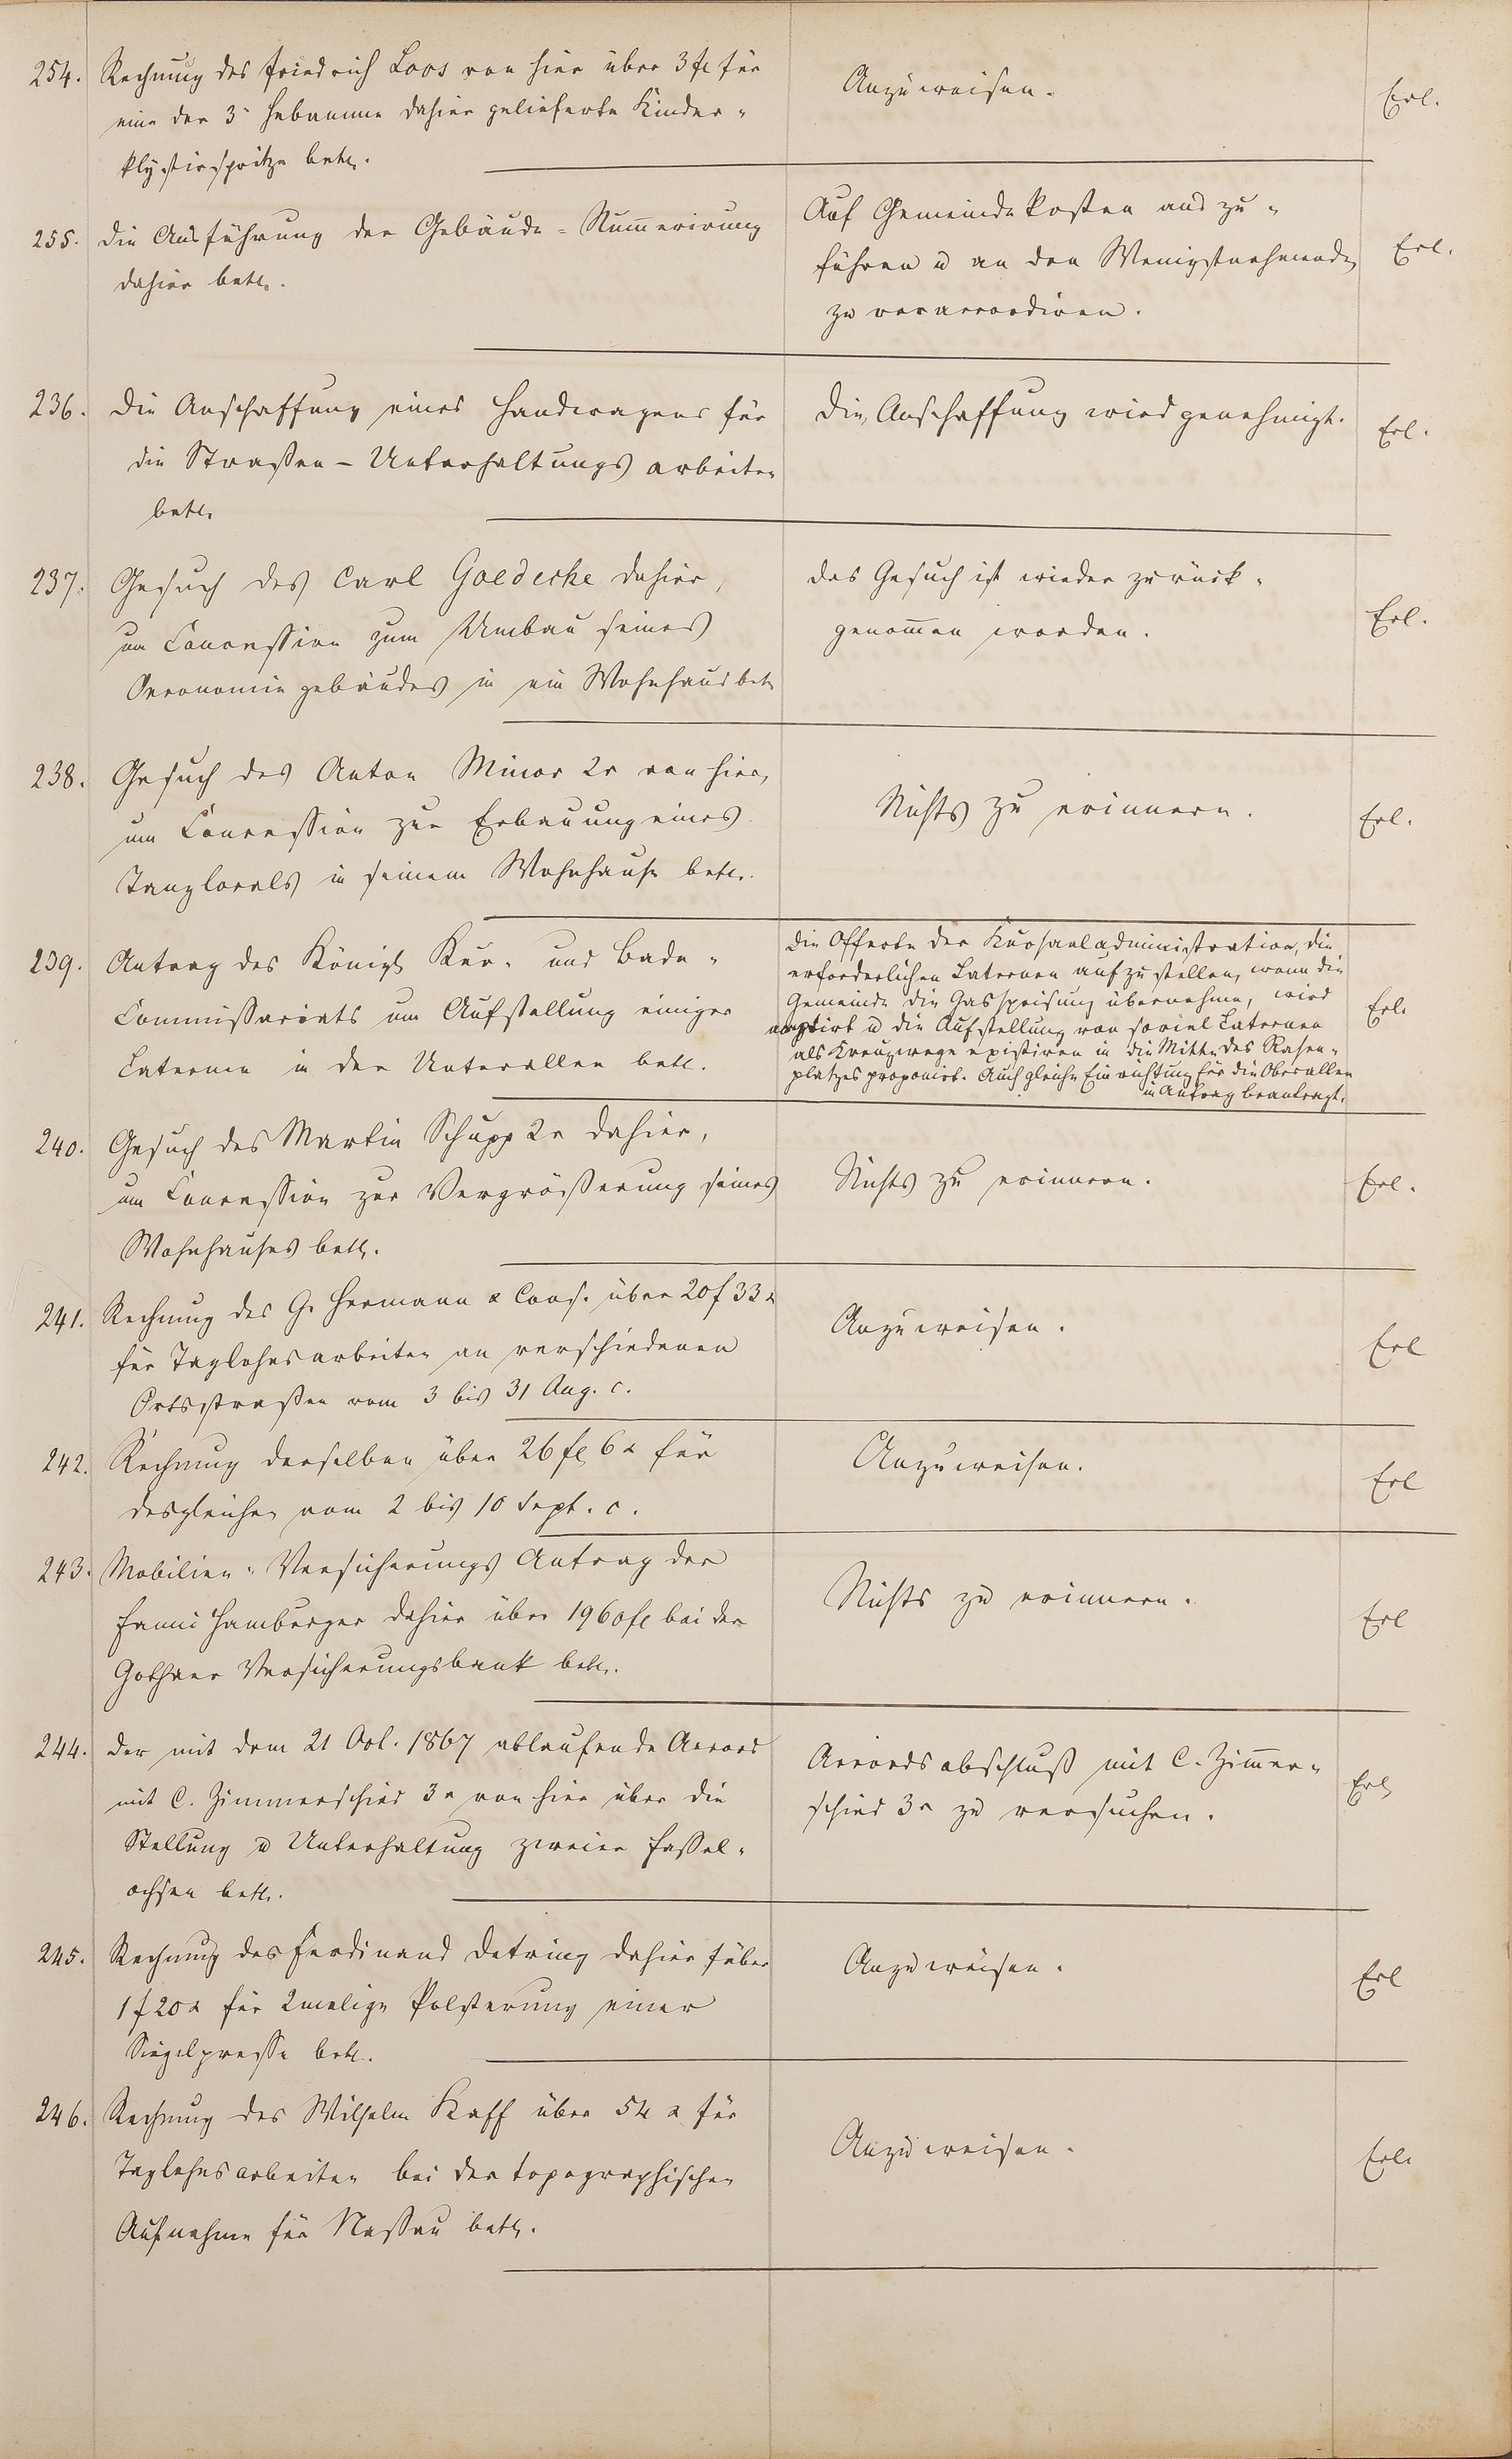 254. Rechnung des Friedrich Loos von hier über 3 fl für
eine der 3n Hebamme dahier gelieferte Kinder-
klystirspritze betr.
Anzuweisen.
Erl.
255. Die Ausführung der Gebäude-Numerirung
dahier betr.
Auf Gemeindekosten aus zu-
führen u an den Wenigstnehmenden
zu veraccordiren.
Erl.
236. Die Anschaffung eines Handwagens für
die Straßen-Unterhaltungsarbeiten
betr.
Die Anschaffung wird genehmigt.
Erl.
237. Gesuch des Carl Goedecke dahier,
um Concession zum Umbau seines
Oeconomiegebäudes in ein Wohnhaus betr
das Gesuch ist wieder zurück-
genommen worden.
Erl.
238. Gesuch des Anton Minor 2r von hier,
um Concession zur Erbauung eines
Tanzlocals in seinem Wohnhause betr.
Nichts zu erinnern.
Erl.
239. Antrag des Königl Kur- und Bade-
Commissariats um Aufstellung einiger
Laternen in der Unterallee betr.
Die Offerte der Kursaaladministration, die
erforderlichen Laternen aufzustellen, wenn die
Gemeinde die Gasspeisung übernehme, wird
acceptirt u die Aufstellung von soviel Laternen
als Kreuzwege existiren in die Mitte des Rasen-
platzes proponirt. Auch gleiche Einrichtung für die Oberallee
in Antrag beantragt.
Erl.
240. Gesuch des Martin Schupp 2r dahier,
um Concession zur Vergrößerung seines
Wohnhauses betr.
Nichts zu erinnern.
Erl.
241. Rechnung des G. Hermann & Cons. über 20 f 33 x
für Taglohnsarbeiten an verschiedenen
Ortsstraßen vom 3 bis 31 Aug. c.
Anzuweisen.
Erl
242. Rechnung derselben über 26 fl 6 x für
desgleichen vom 2 bis 10 Sept. c.
Anzuweisen.
Erl
243. Mobilien-Versicherungs Antrag der
Fanni Hamburger dahier über 1960 fl bei der
Gothaer Versicherungsbank betr.
Nichts zu erinnern.
Erl
244. Der mit dem 21 Oct. 1867 ablaufende Accord
mit C. Zimmerschied 3r von hier über die
Stellung u Unterhaltung zweier Fassel-
ochsen betr.
Accordsabschluß mit C. Zimer-
schied 3r zu versuchen.
Erl
245. Rechnung des Ferdinand Detring dahier über
1 f 20 x für 2malige Polsterung einer
Siegelpresse betr.
Anzuweisen.
Erl
246. Rechnung des Wilhelm Kaff über 54 x für
Taglohnsarbeiten bei der topographischen
Aufnahme für Nassau betr.
Anzuweisen.
Erl.